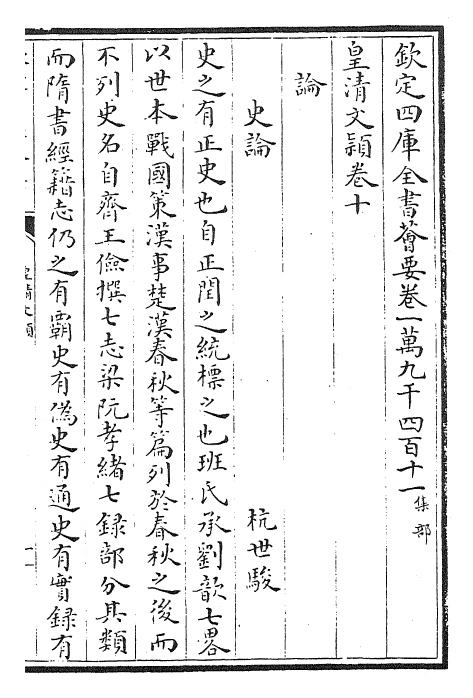 欽定四庫全書薈要卷一萬九千四百十一集部
皇清文頴卷十
論
史論 杭世駿
史之有正史也自正閏之統標之也班氏承劉歆七畧
以世本戰國策漢事楚漢春秋等篇列於春秋之後而
不列史名自齊王儉撰七志梁阮孝緒七録部分其類
而隋書經籍志仍之有霸史有偽史有通史有實録有
皇清文頴